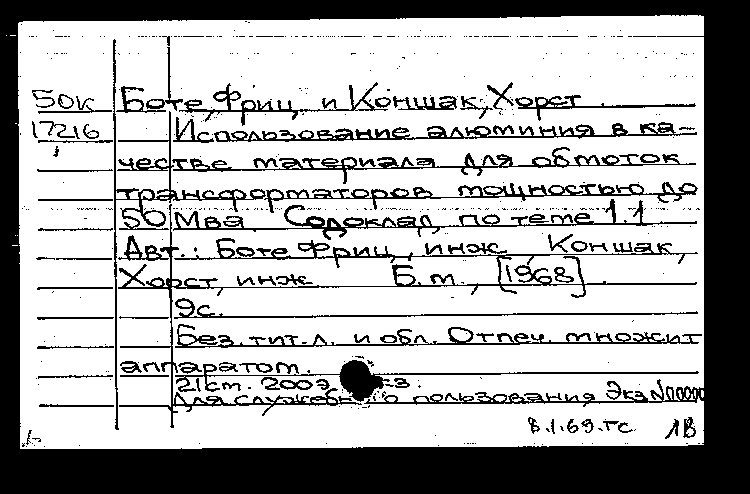 50к Боте, Фриц и Коншак, Хорст
17216 Использование алюминия в ка-
честве материала для обмоток
трансформаторов мощностью до
50 Мва. Содоклад по теме 1.1
Авт.: Боте Фриц, инж, Коншак,
Хорст, инж Б.м., [1968].
9с.
Без. тит.л. и обл. Отпеч. множит
аппаратом.
21см. 200 экз.
Для служебного пользования Экз№00000
8.1.69.гс 1В